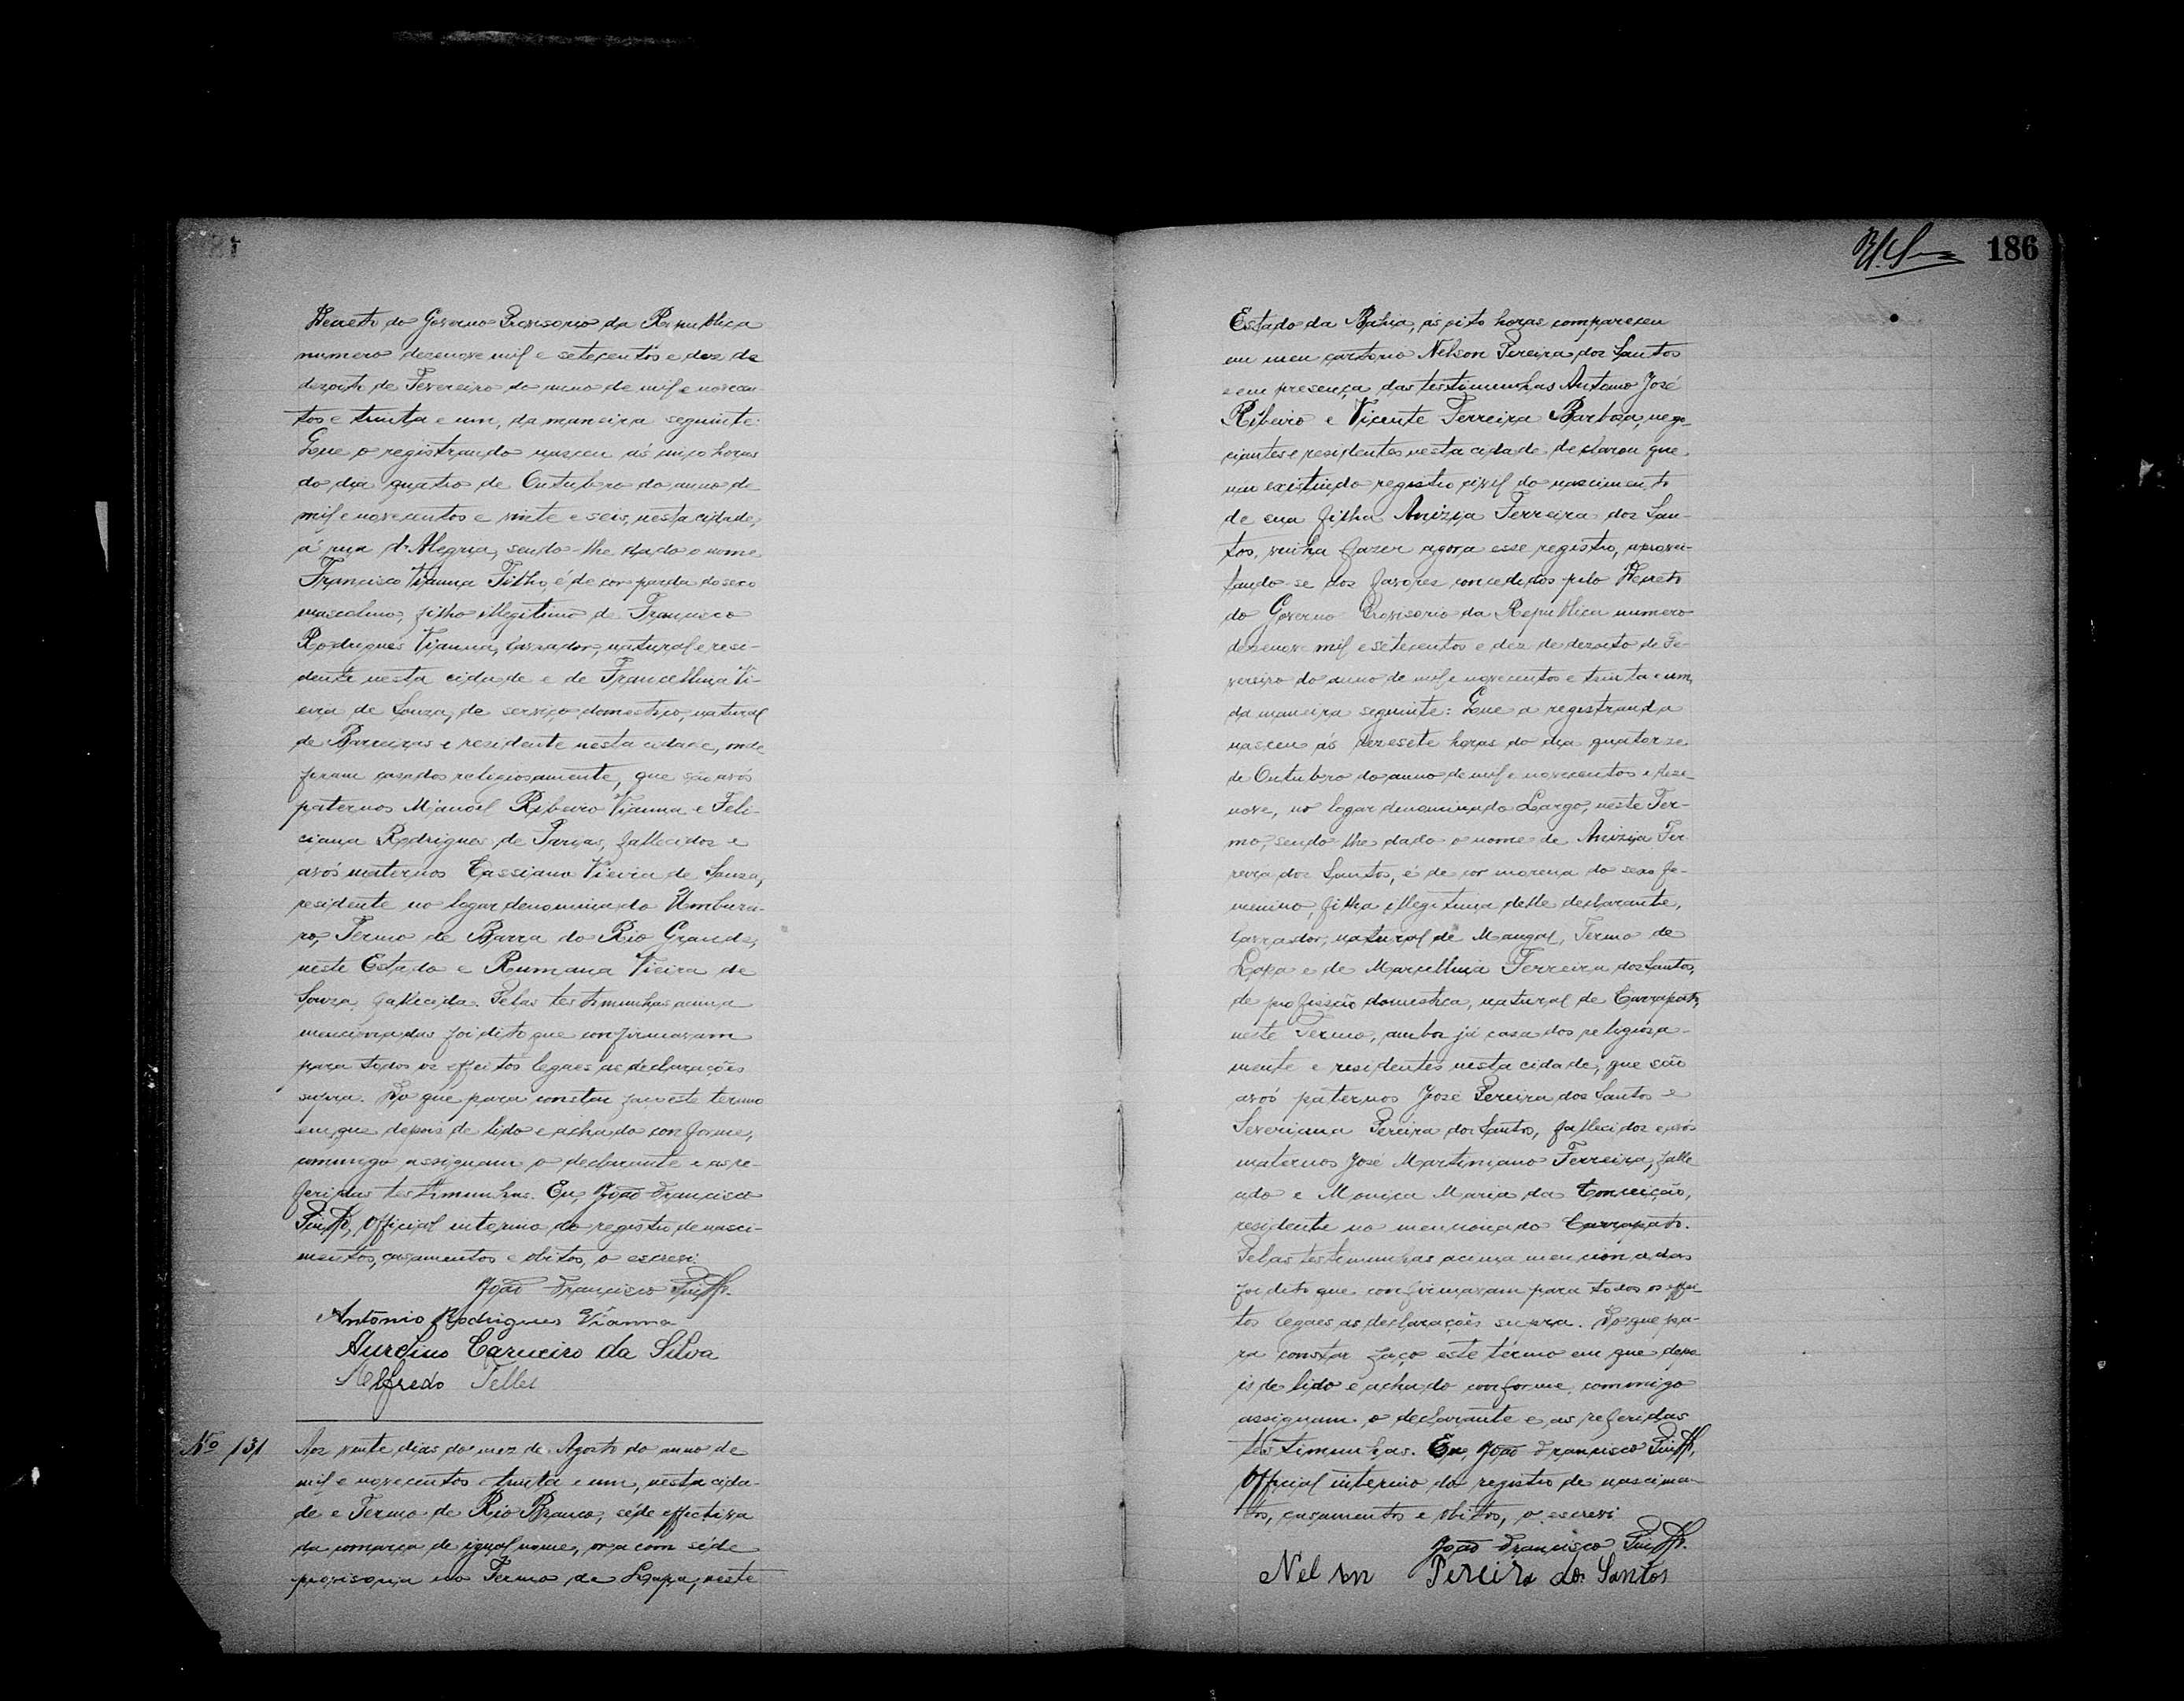 Decreto do Governo Provisorio da Republica
numero dezenove mil e setecentos e dez de
dezoito de Fevereiro do anno de mil e novecen-
tos e trinta e um, da maneira seguinte:
Que o registrando nasceu ás cinco horas
do dia quatro de Outubro do anno de
mil e novecentos e vinte e seis, nesta cidade,
á rua d'Alegria, sendo-lhe dado o nome
Francisco Vianna Filho, é de cor parda do sexo
masculino, filho illegitimo de Francisco
Rodrigues Vianna, lavrador, natural e resi-
dente nesta cidade e de Francellina Vi-
eira de Souza, de serviço domestico, natural
de Barreiras e residente nesta cidade, onde
foram casados religiosamente, que são avós
paternos Manoel Ribeiro Vianna e Feli-
ciana Rodrigues de Farias, fallecidos e
avós maternos Cassiano Vieira de Souza,
residente no logar denominado Umburei-
ro, Termo de Barra do Rio Grande,
neste Estado e Rumana Vieira de
Souza, fallecida. Pelas testimunhas acima
mencionadas foi dito que confirmavam
para todos os effeitos legaes as declarações
supra. Do que para constar faço este termo
em que depois de lido e achado conforme,
commigo assignam o declarante e as re-
feridas testimunhas. Eu, João Francisco
Official interino do registro de nasci-
mentos, casamentos e obitos, o escrevi.
João Francisco
Antonio Rodrigues Vianna
Aurelino Carneiro da Silva
Alfredo Telles
Nº 131 Aos vinte dias do mez de Agosto do anno de
mil e novecentos e trinta e um, nesta cida-
de e Termo de Rio Branco, séde effectiva
da comarca de igual nome, ora com séde
provisoria no Termo da Lapa, neste
186
Estado da Bahia, ás oito horas compareceu
em meu cartorio Nelson Pereira dos Santos
e em presença das testimunhas Antonio José
Ribeiro e Vicente Ferreira Barbosa, nego-
ciantes e residentes nesta cidade declarou que
nun existindo registro civil do nascimento
de sua filha Anizia Ferreira dos San-
tos, vinha fazer agora esse registro, aprovei-
tando-se dos favores concedidos pelo Decreto
do Governo Provisorio da Republica numero
dezenove mil e setecentos e dez de dezoito de Fe-
vereiro do anno de mil e novecentos e trinta e um,
da maneira seguinte: Que a registranda
nasceu ás dezesete horas do dia quatorze
de Outubro do anno de mil e novecentos e deze-
nove, no logar denominado Largo, neste Ter-
mo, sendo-lhe dado o nome de Anizia Fer-
reira dos Santos, é de cor morena do sexo fe-
menino, filha illegitima delle declarante,
lavrador, natural de Mangal, Termo de
Lapa e de Marcellina Ferreira dos Santos,
de profissão domestica, natural de Carrapato,
neste Termo, ambos já casados religiosa-
mente e residentes nesta cidade, que são
avós paternos José Pereira dos Santos e
Severiana Pereira dos Santos, fallecidos e avós
maternos José Martiniano Ferreira, falle
cido e Monica Maria da Conceição,
residente no mencionado Carrapato.
Pelas testimunhas acima mencionadas
foi dito que confirmavam para todos os effei-
tos legaes, as declarações supra. Do que pa-
ra constar faço este termo em que depo
is de lido e achado conforme, commigo
assignam o declarante e as referidas
testimunhas. Eu, João Francisco
Official interino do registro de nascimen-
tos, casamentos e obitos, o escrevi
João Francisco
Nelson Pereira dos Santos